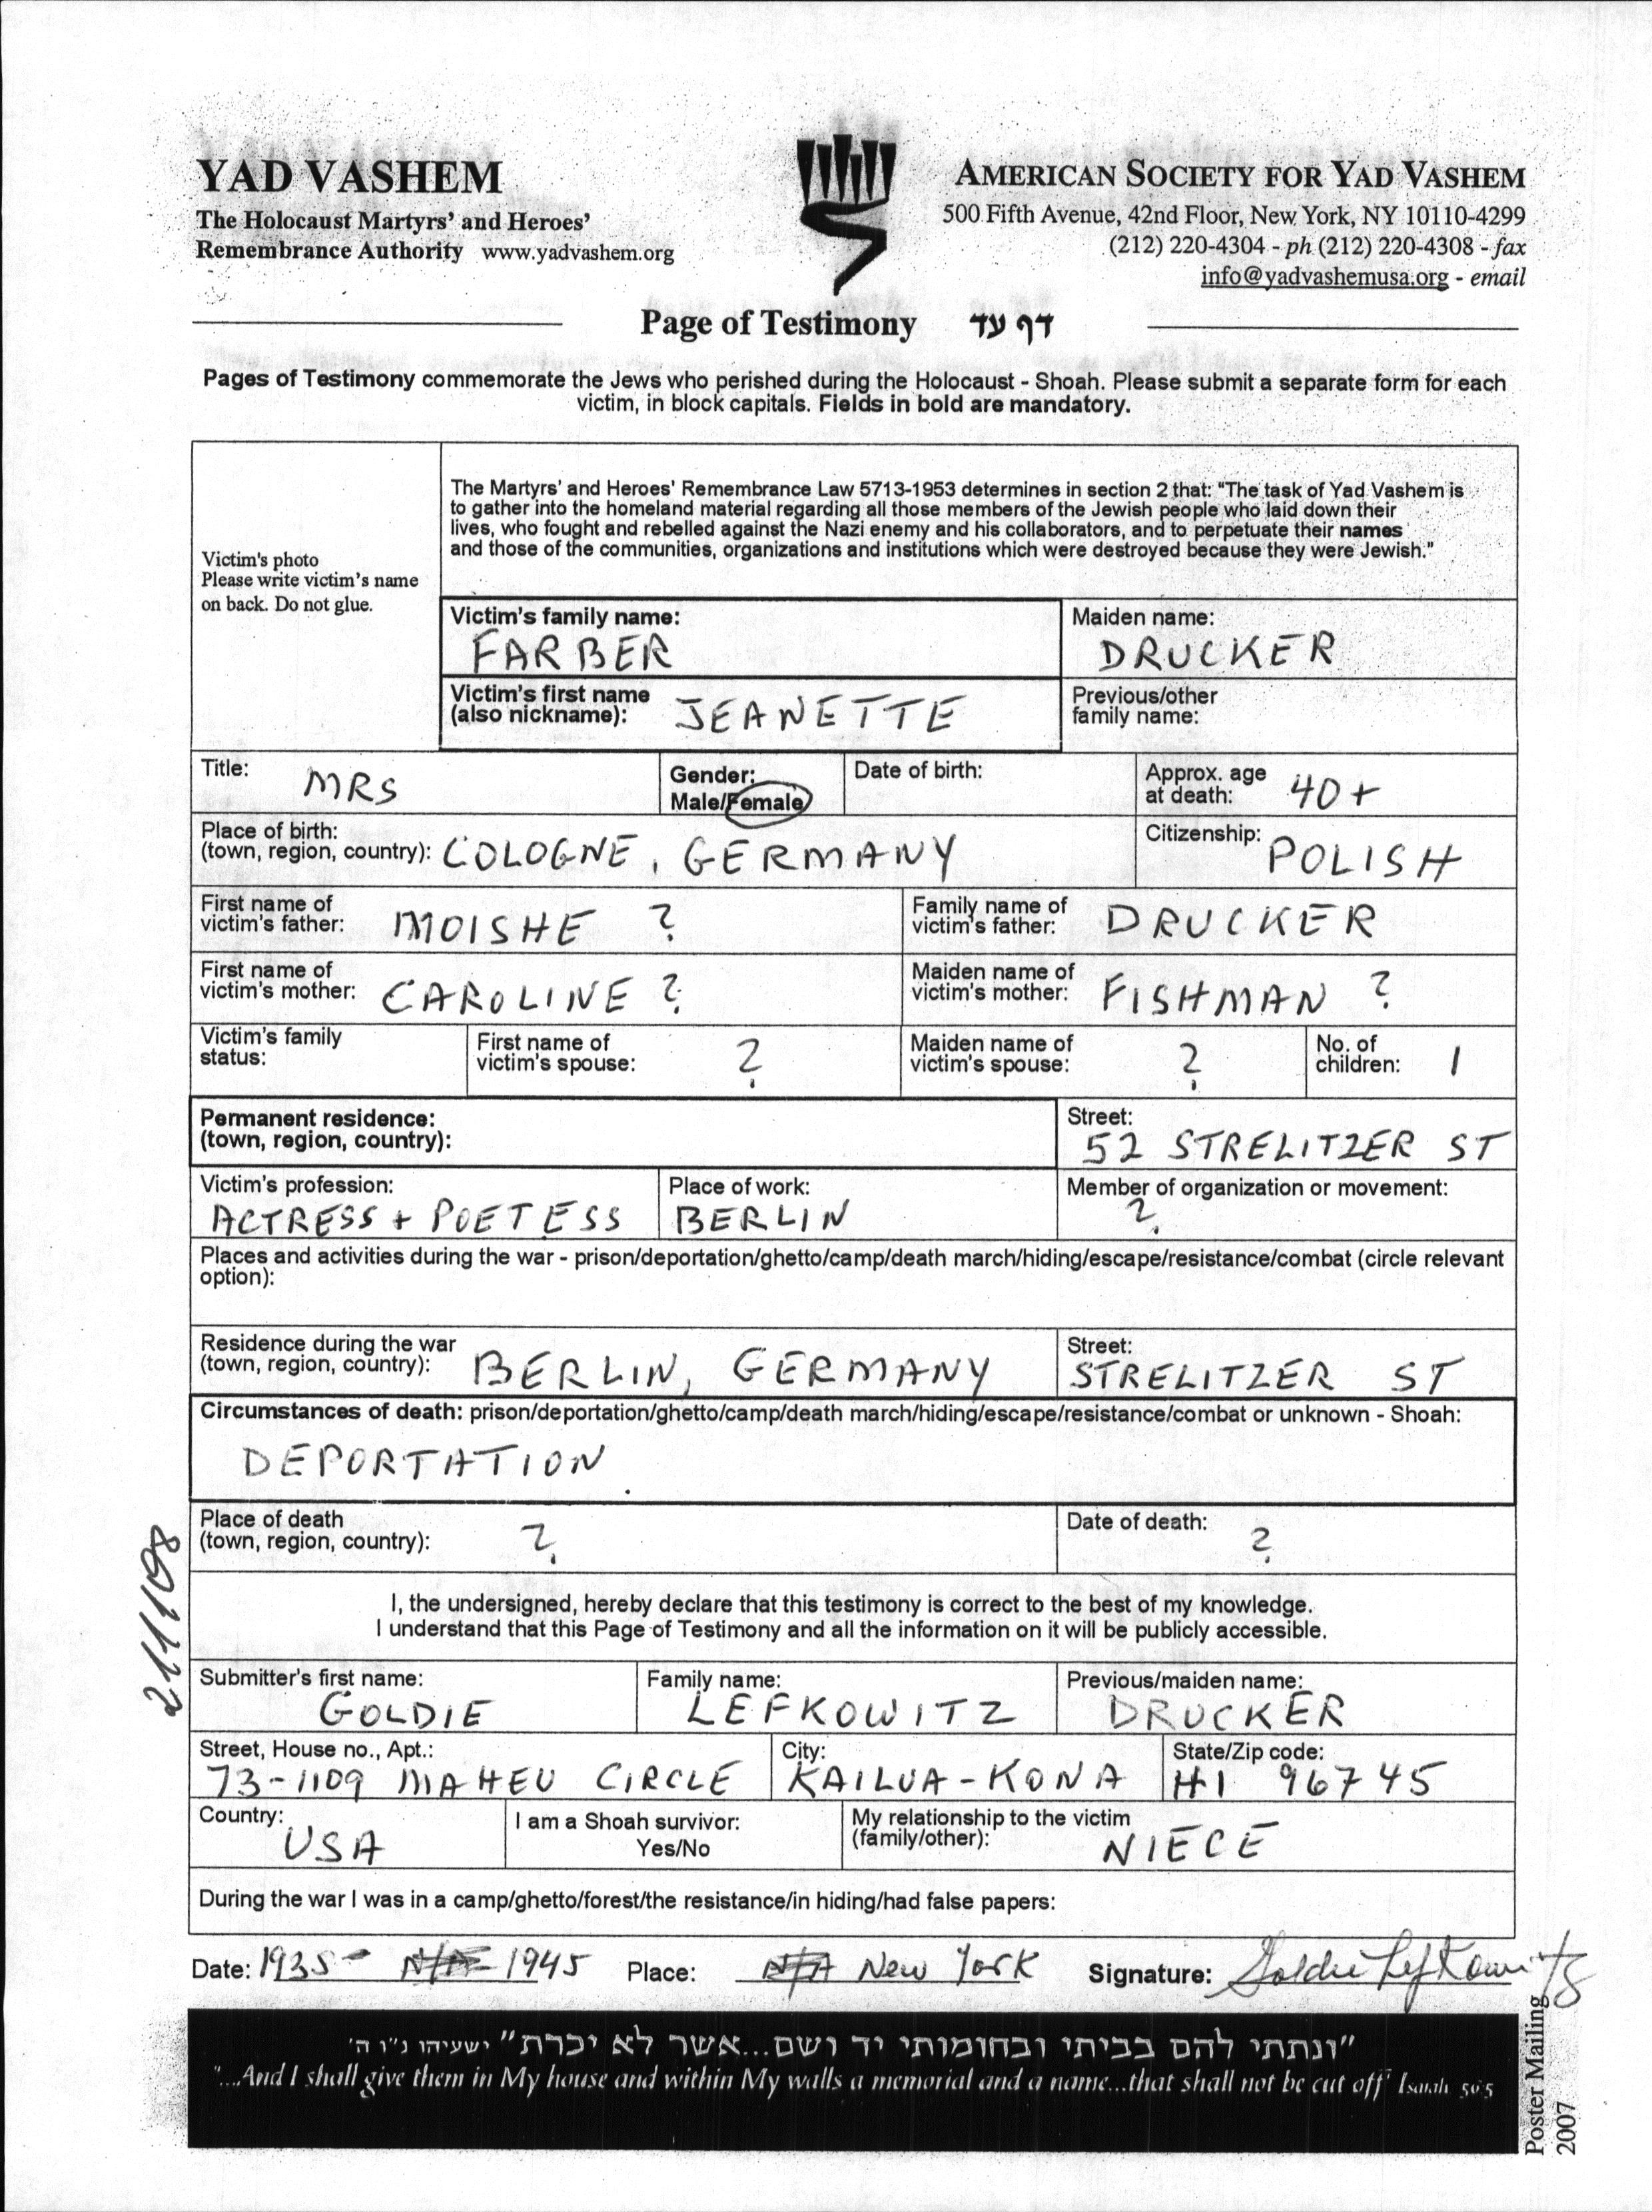 YAD VASHEM
The Holocaust Martyrs' and Heroes'
Remembrance Authority www.yadvashem.org
AMERICAN SOCIETY FOR YAD VASHEM
500 Fifth Avenue, 42nd Floor, New York, NY 10110-4299
(212) 220-4304 - ph (212) 220-4308 - fax
info@yadvashemusa.org - email
Page of Testimony דף עד
Pages of Testimony commemorate the Jews who perished during the Holocaust - Shoah. Please submit a separate form for each
victim, in block capitals. Fields in bold are mandatory.
Victim's photo
Please write victim's name
on back. Do not glue.
The Martyrs' and Heroes' Remembrance Law 5713-1953 determines in section 2 that: "The task of Yad Vashem is
to gather into the homeland material regarding all those members of the Jewish people who laid down their
lives, who fought and rebelled against the Nazi enemy and his collaborators, and to perpetuate their names
and those of the communities, organizations and institutions which were destroyed because they were Jewish."
Victim's family name:
FARBER
Maiden name:
DRUCKER
Victim's first name
(also nickname): JEANETTE
Previous/other
family name:
Title: MRS
Gender:
Male/Female
Date of birth:
Approx. age
at death: 40+
Place of birth:
(town, region, country): COLOGNE, GERMANY
Citizenship:
POLISH
First name of
victim's father: MOISHE ?
Family name of
victim's father: DRUCKER
First name of
victim's mother: CAROLINE ?
Maiden name of
victim's mother: FISHMAN ?
Victim's family
status:
First name of
victim's spouse: ?
Maiden name of
victim's spouse: ?
No. of
children: 1
Permanent residence:
(town, region, country):
Street:
52 STRELITZER ST
Victim's profession:
ACTRESS + POETESS
Place of work:
BERLIN
Member of organization or movement:
?
Places and activities during the war - prison/deportation/ghetto/camp/death march/hiding/escape/resistance/combat (circle relevant
option):
Residence during the war
(town, region, country): BERLIN, GERMANY
Street:
STRELITZER ST
Circumstances of death: prison/deportation/ghetto/camp/death march/hiding/escape/resistance/combat or unknown - Shoah:
DEPORTATION
Place of death
(town, region, country): ?
Date of death:
?
I, the undersigned, hereby declare that this testimony is correct to the best of my knowledge.
I understand that this Page of Testimony and all the information on it will be publicly accessible.
Submitter's first name:
GOLDIE
Family name:
LEFKOWITZ
Previous/maiden name:
DRUCKER
Street, House no., Apt.:
73-1109 MAHEU CIRCLE
City:
KAILUA-KONA
State/Zip code:
HI 96745
Country:
USA
I am a Shoah survivor:
Yes/No
My relationship to the victim
(family/other): NIECE
During the war I was in a camp/ghetto/forest/the resistance/in hiding/had false papers:
Date: 1935 - N/A 1945 Place: N/A New York Signature: Goldie Lefkowitz
"ונתתי להם בביתי ובחומותי יד ושם...אשר לא יכרת" ישעיהו נ"ו ה'
"...And I shall give them in My house and within My walls a memorial and a name...that shall not be cut off" Isaiah 56:5
Poster Mailing
2007